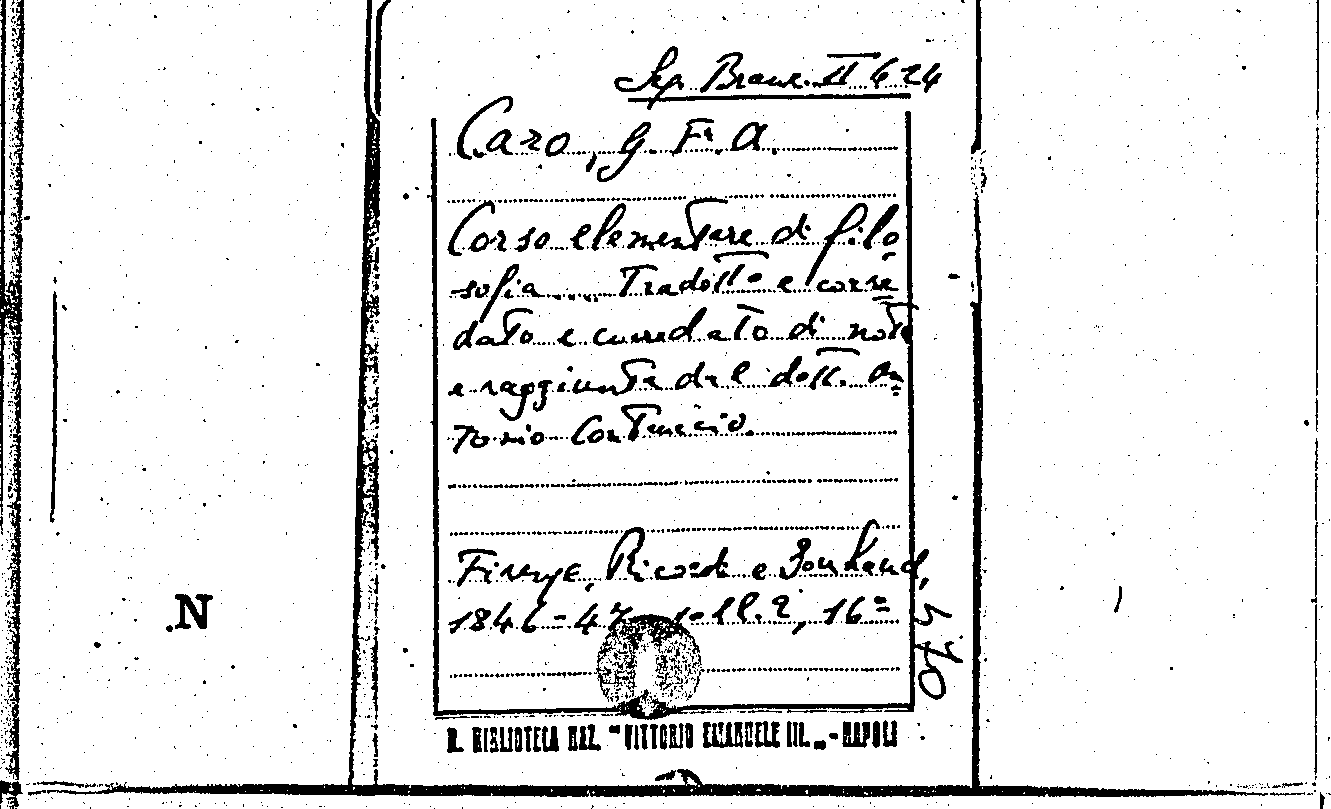 Sez. Branc. II 424
Caro, G. Fr. A.
Corso elementare di filo
sofia .... Tradotto e corre
dato e corredato di note
e raggiunte dal dott. An
tonio Contuccio.
Firenze, Ricordi e Jouhaud,
1846-47, 1-II. 2, 16º
570
N
R. BIBLIOTECA NAZ. "VITTORIO EMANUELE III." - NAPOLI